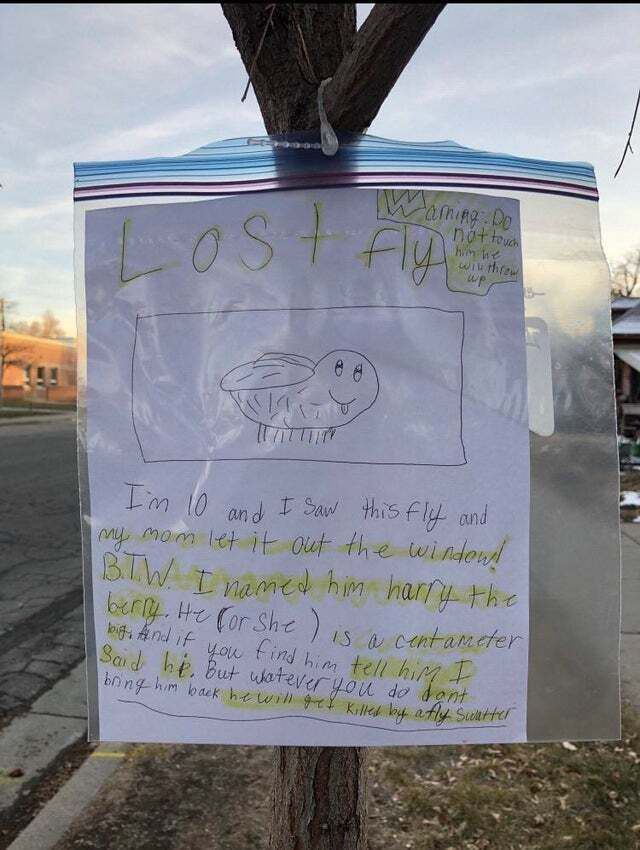 Lost fly
Warning: Do
not touch
him he
will throw
up
I'm 10 and I saw this fly and
my mom let it out the window!
B.T.W. I named him harry the
berry. He (or she) is a centameter
big. And if you find him tell him I
Said hi. But watever you do dont
bring him back he will get killed by a fly Swatter